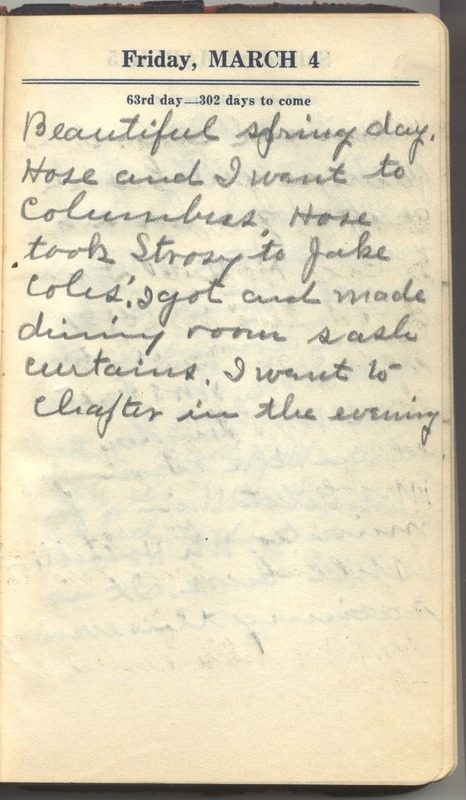 Friday, MARCH 4
63rd day—302 days to come
Beautiful spring day.
Hose and I went to
Columbus. Hose
took Strosy to Jake
Coles'. I got and made
dining room sash
curtains. I went to
Chapter in the evening